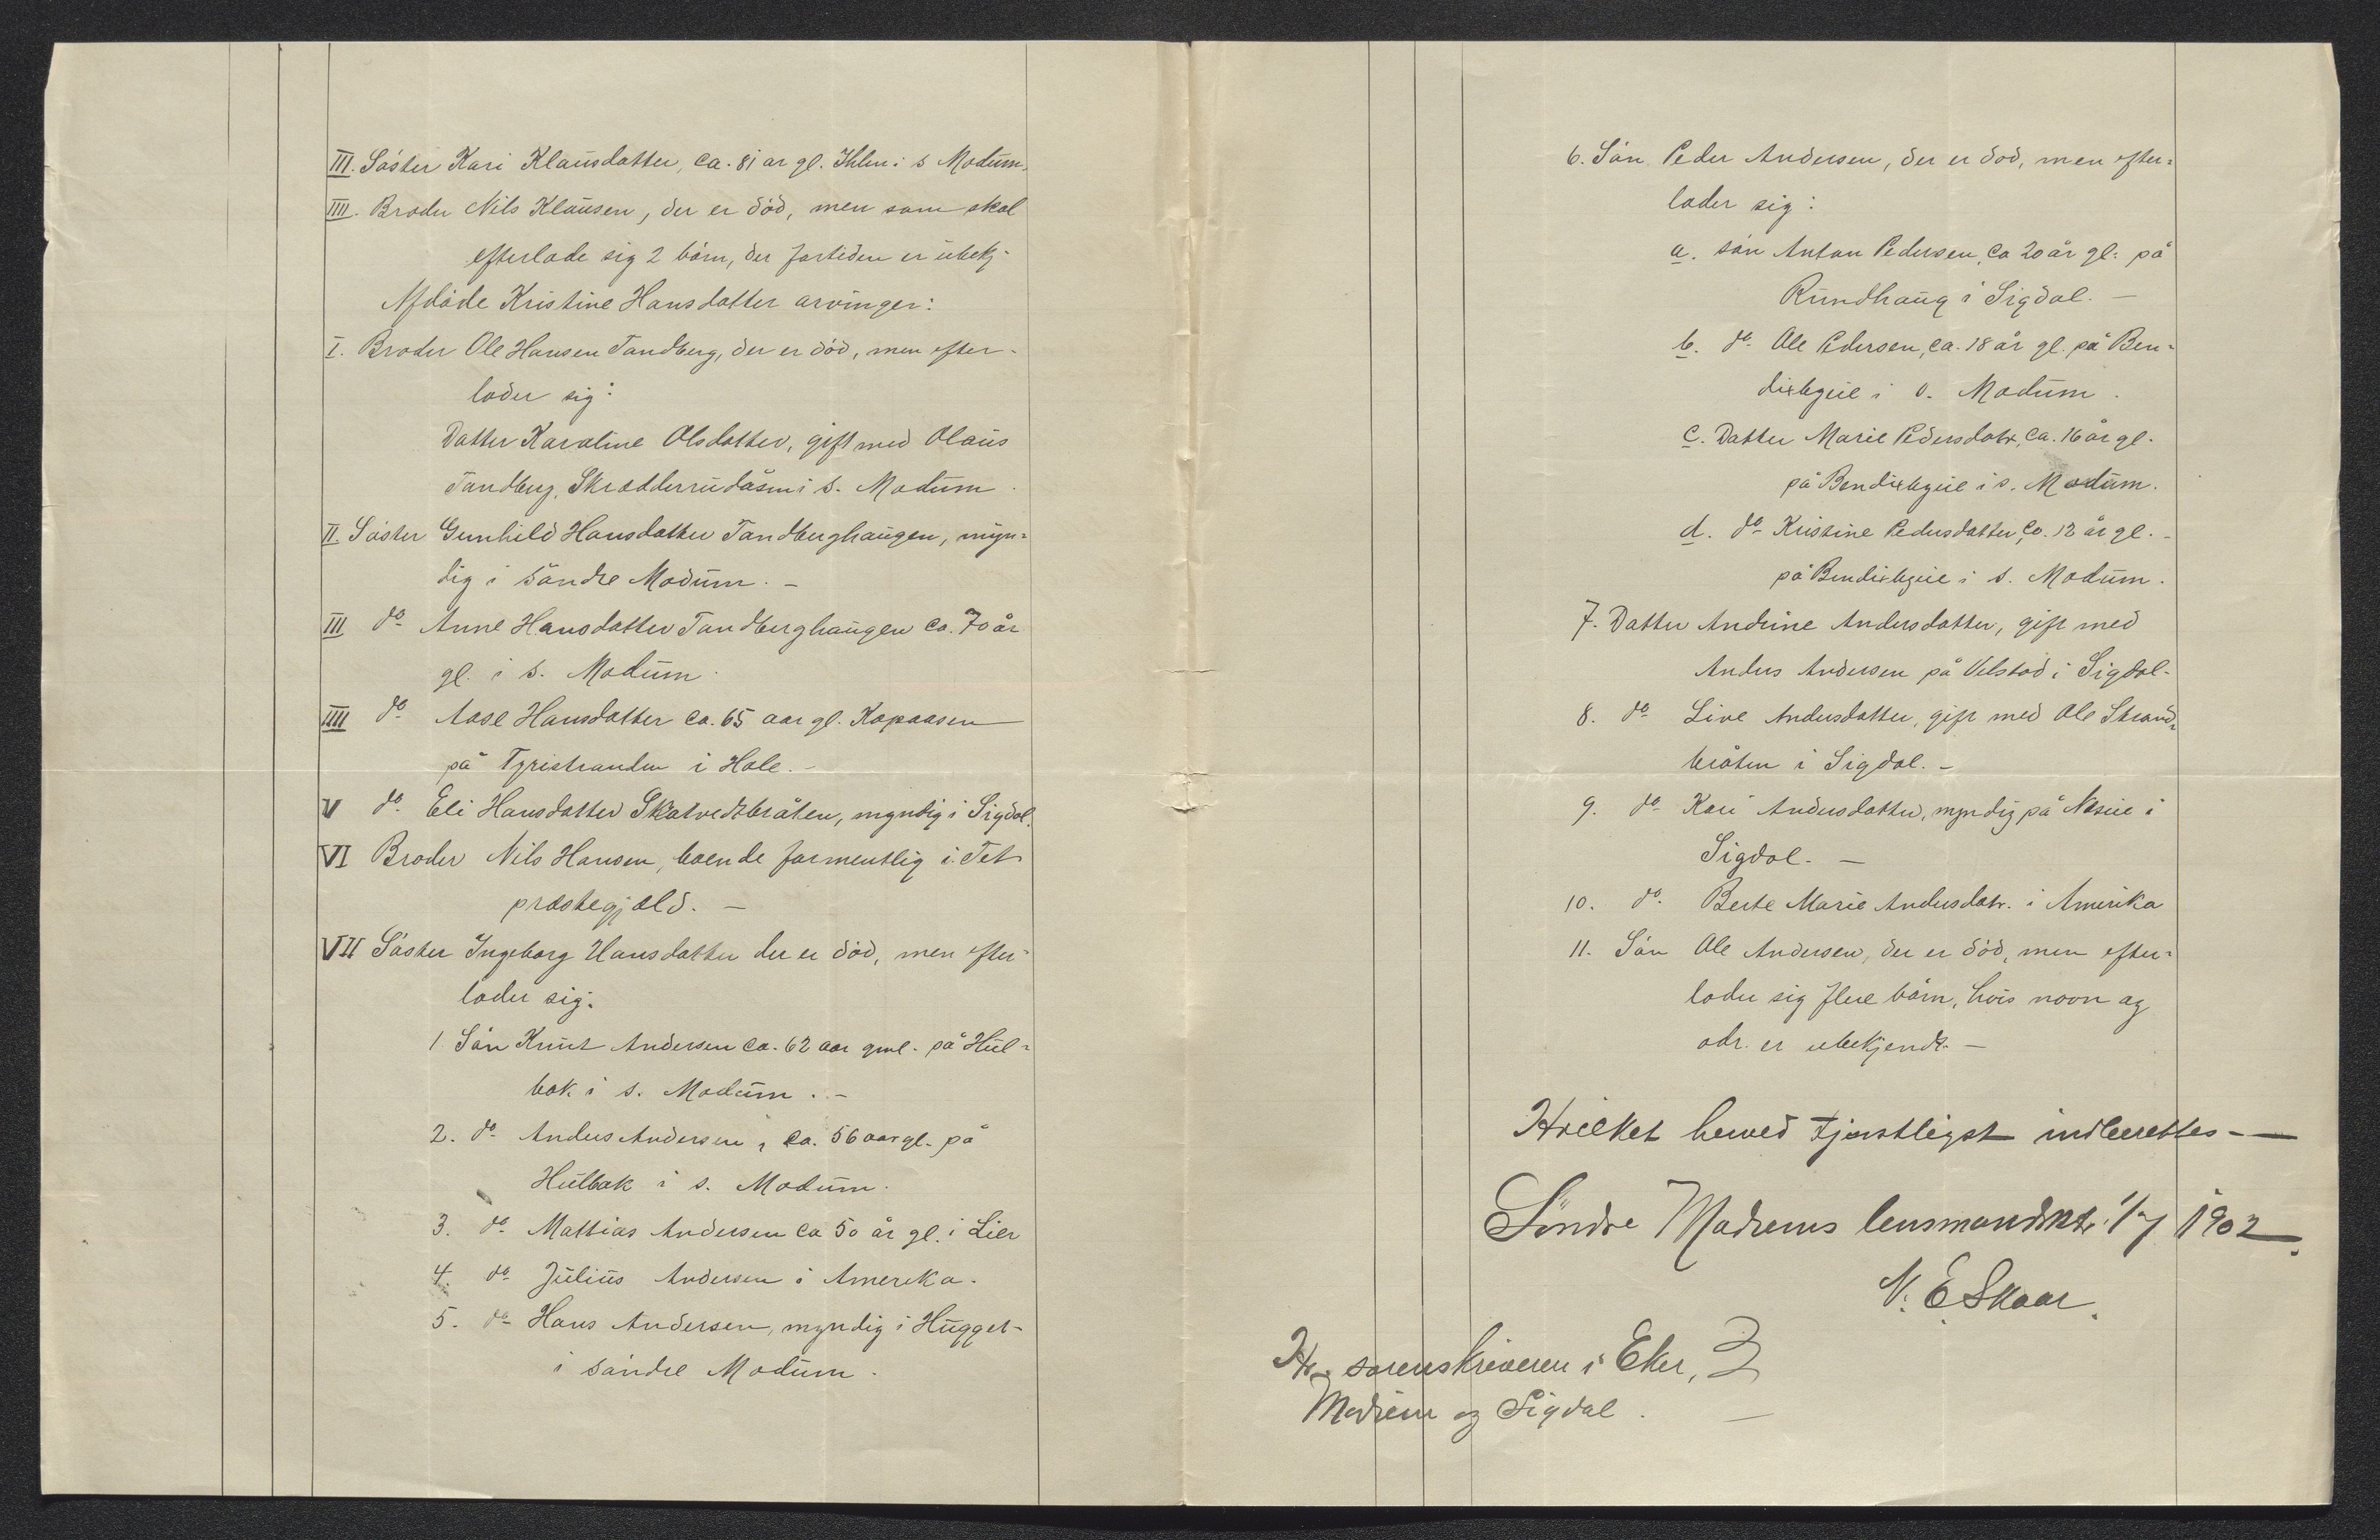 III. Søster Kari Klausdatter, ca. 81 ar gl. Ihlen i s Modum.
IIII. Broder Nils Klausen, der er død, men som skal
efterlade sig 2 børn, der fortiden er ubekj-
Afdøde Kristine Hansdatter arvinger:
I. Broder Ole Hansen Tandberg, der er død, men efter-
lader sig:
Datter Karoline Olsdatter, gift med Olaus
Tandberg, Skrædderrudåsen i s. Modum.
II. Søster Gunhild Hansdatter Tandberghaugen, myn=
dig i søndre Modum. -
III do Anne Hansdatter Tandberghaugen ca. 70 år
gl. i s. Modum.
IIII do Aase Hansdatter ca. 65 aar gl. Kopaasen
på Tyristranden i Hole. -
V do. Eli Hansdatter Skatvedtbråten, myndig i Sigdal.
VI Broder Nils Hansen, boende formentlig i
præstegjæld. -
VII Søster Ingeborg Hansdatter der er død, men efter-
lader sig:
1 Søn Knut Andersen ca. 62 aar gml. på Hul=
bak i s. Modum. -
2. do Anders Andersen, ca. 56 aar gl. på
Hulbak i s. Modum.
3. do Mattias Andersen ca 50 år gl. i Lier
4. do Julius Andersen i Amerika.
5. do Hans Andersen, myndig i Hugget-
i søndre Modum.
6. Søn Peder Andersen, der er død, men efter=
lader sig:
a. søn Anton Pedersen, ca 20 år gl: på
Rundhaug i Sigdal. -
b. do Ole Pedersen, ca. 18 år gl. på Ben=
dixbyeie i s. Modum.
c. Datter Marie Pedersdatr, ca. 16 år gl.
på Bendixbyeie i s. Modum.
d. do Kristine Pedersdatter, ca. 12 år gl. -
på Bendixbyeie i s. Modum.
7. Datter Andrine Andersdatter, gift med
Anders Andersen på Velstad i Sigdal.
8. do Live Andersdatter, gift med Ole Strand=
bråten i Sigdal. -
9. do Kari Andersdatter, myndig på i
Sigdal. -
10. do. Berte Marie Andersdatr. i Amerika
11. Søn Ole Andersen, der er død, men efter=
lader sig flere børn, hvis navn og
adr. er ubekjendt. -
Hvilket herved tjenstligst indberettes -
Søndre Modums lensmandsktr. 1/7 1902.
N. E. Skaar.
Hr. sorenskriveren i Eker,
Modum og Sigdal. -